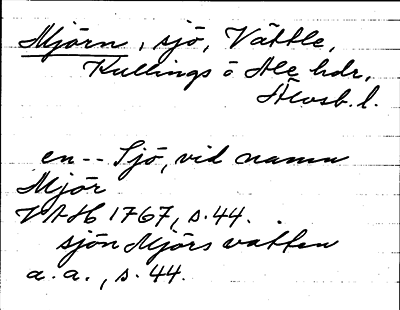 Mjörn, sjö, Vättle,
Kullings o Ale hdr,
Älvsb. l.
en -- Sjö, vid namn
Mjör
VAH 1767, s. 44.
sjön Mjörs vatten
a. a., s. 44.